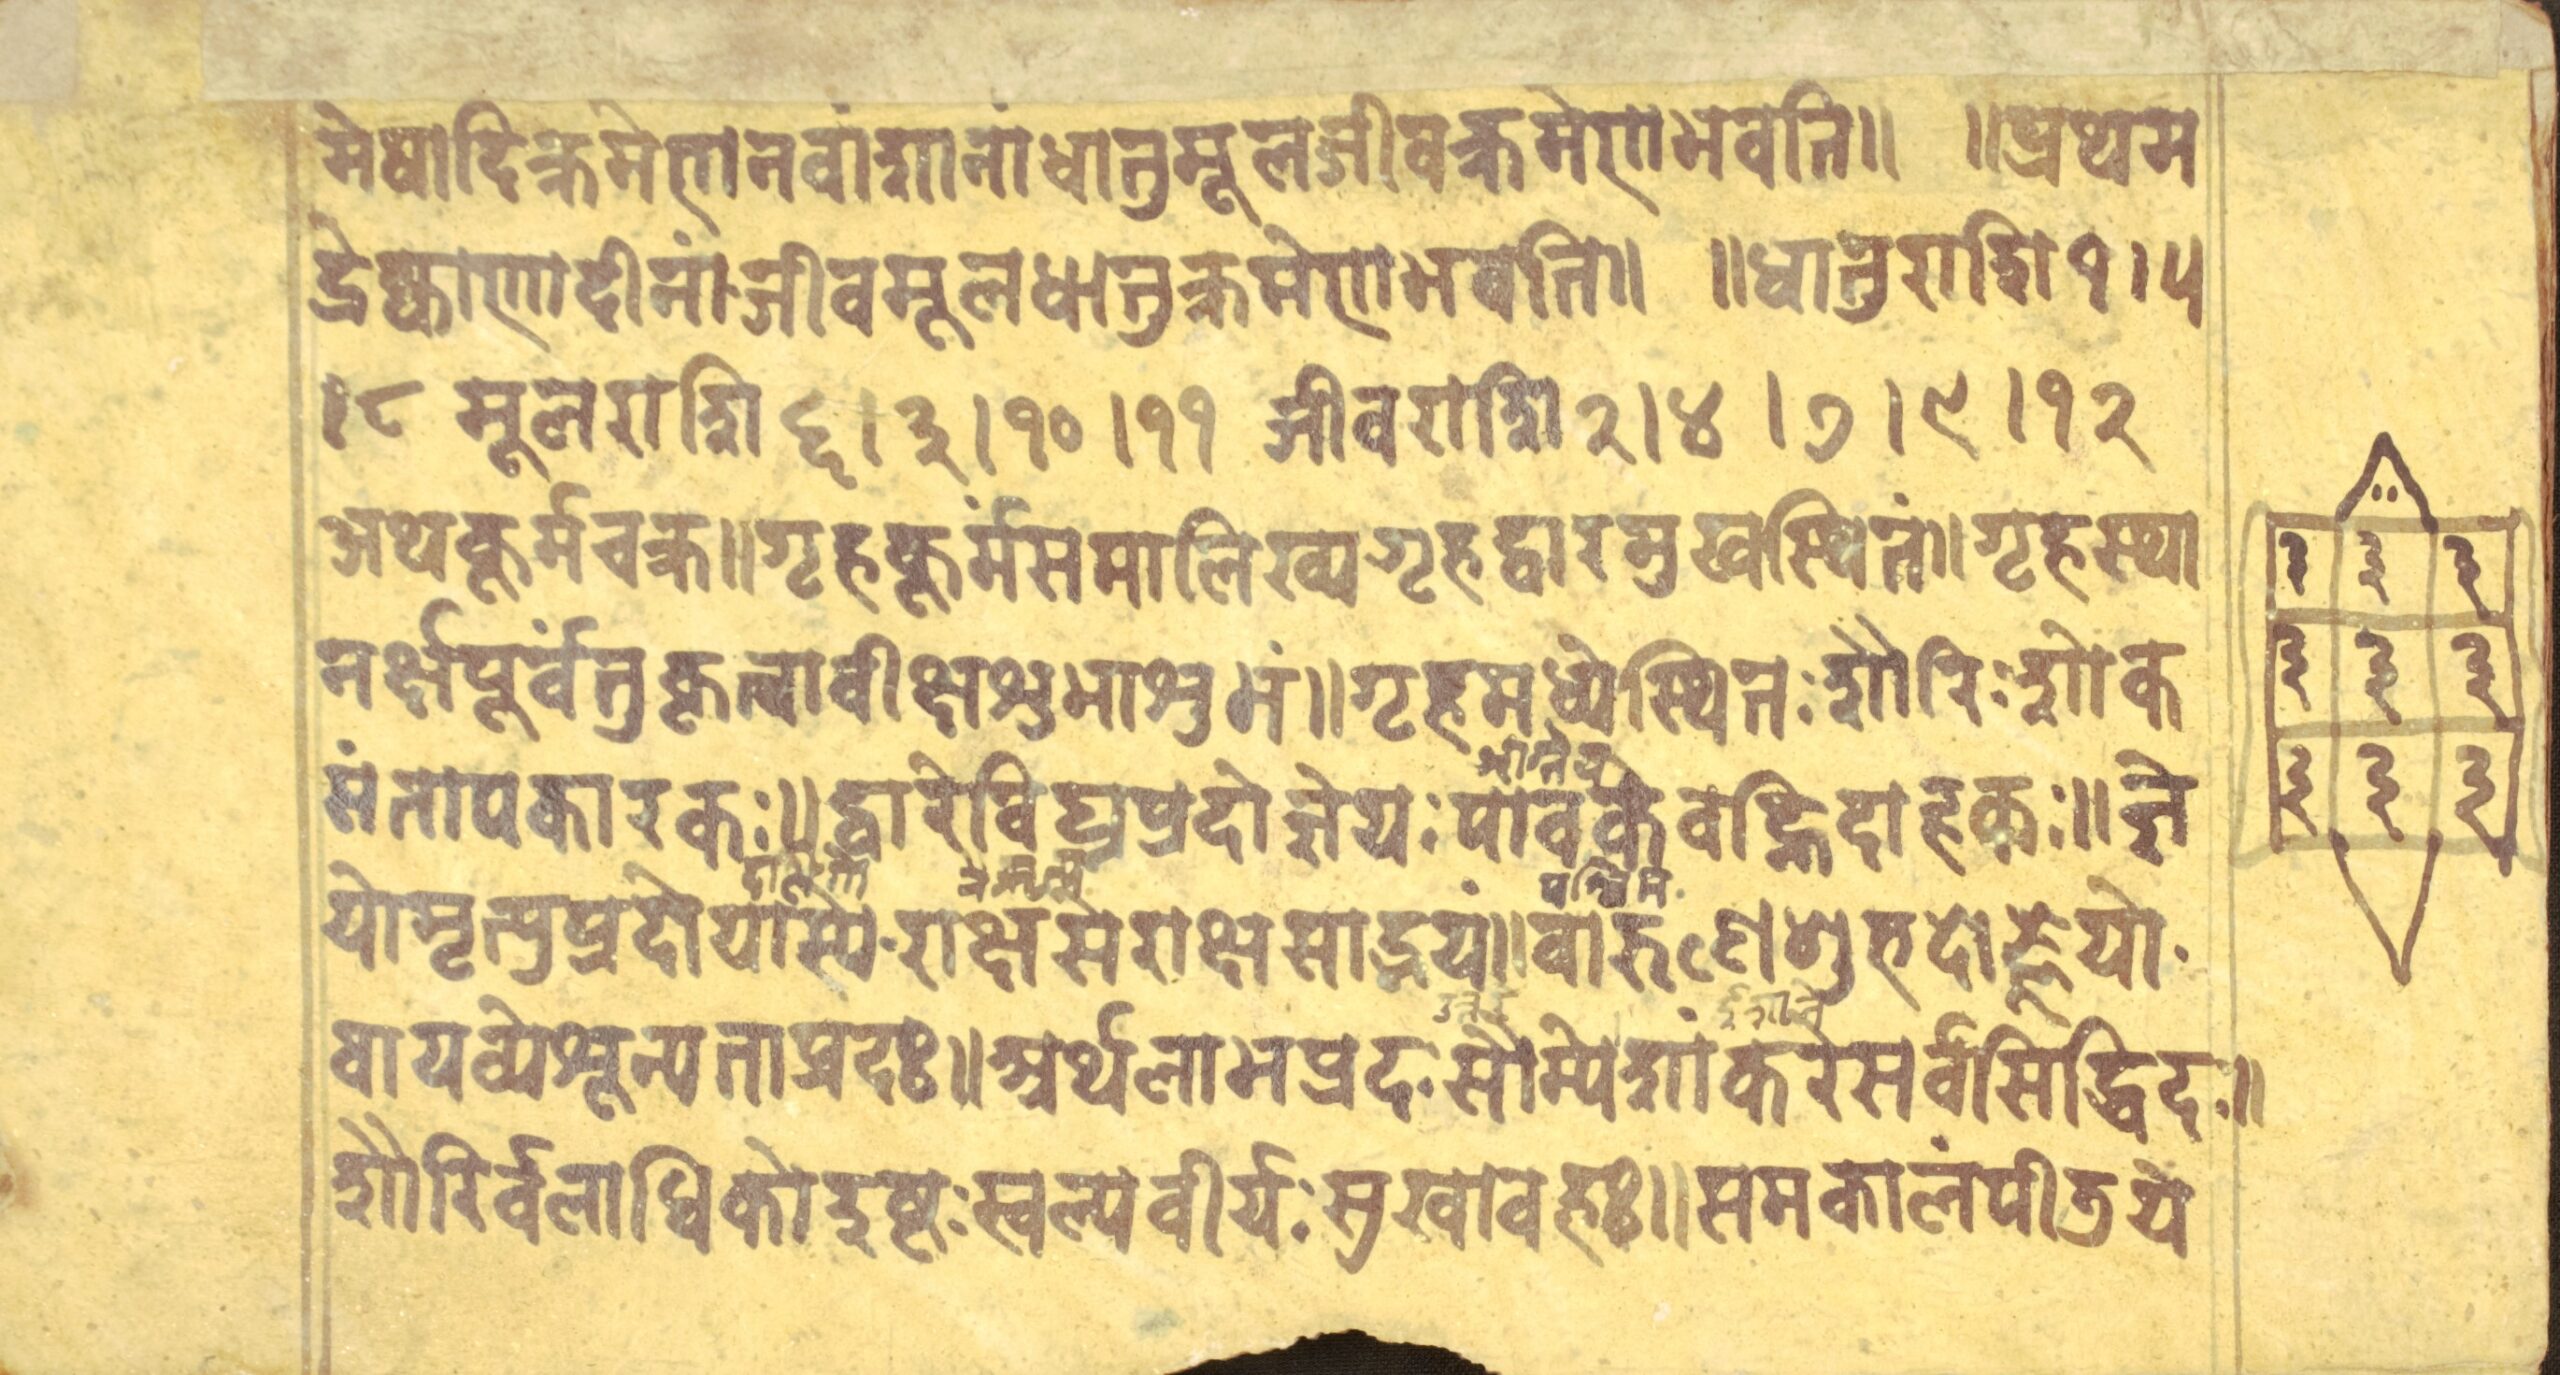 मेषादिक्रमेणनवांशानांधातुमूलजीवक्रमेणभवति॥ ॥प्रथम
द्रेष्काणादीनांजीवमूलधातुक्रमेणभवति॥ ॥धातुराशि१।५
।८ मूलराशि ६।३।१०।११ जीवराशि२।४।७।९।१२
अथकूर्मचक्र॥गृहकूर्मंसमालिख्यगृहद्वारमुखस्थितं॥गृहस्था
नर्क्षपूर्वंतुकृत्वावीक्षशुभाशुभं॥गृहमध्येस्थितःशौरिःशोक
संतापकारकः॥द्वारेविघ्नप्रदोज्ञेयःपावकेवह्निदाहकः॥ज्ञे
योमृत्युप्रदोयाम्ये·राक्षसेराक्षसाद्भयं॥वारुणेशुभदोज्ञेयो·
वायव्येशून्यताप्रदः॥अर्थलाभप्रदःसौम्येशांकरेसर्वसिद्धिदः॥
शौरिर्वलाधिकोदुष्टःस्वल्पवीर्यःसुखावहः॥समकालंपीडये
पश्चिम
ईशाने
३ ३ ३
३ ३ ३
३ ३ ३